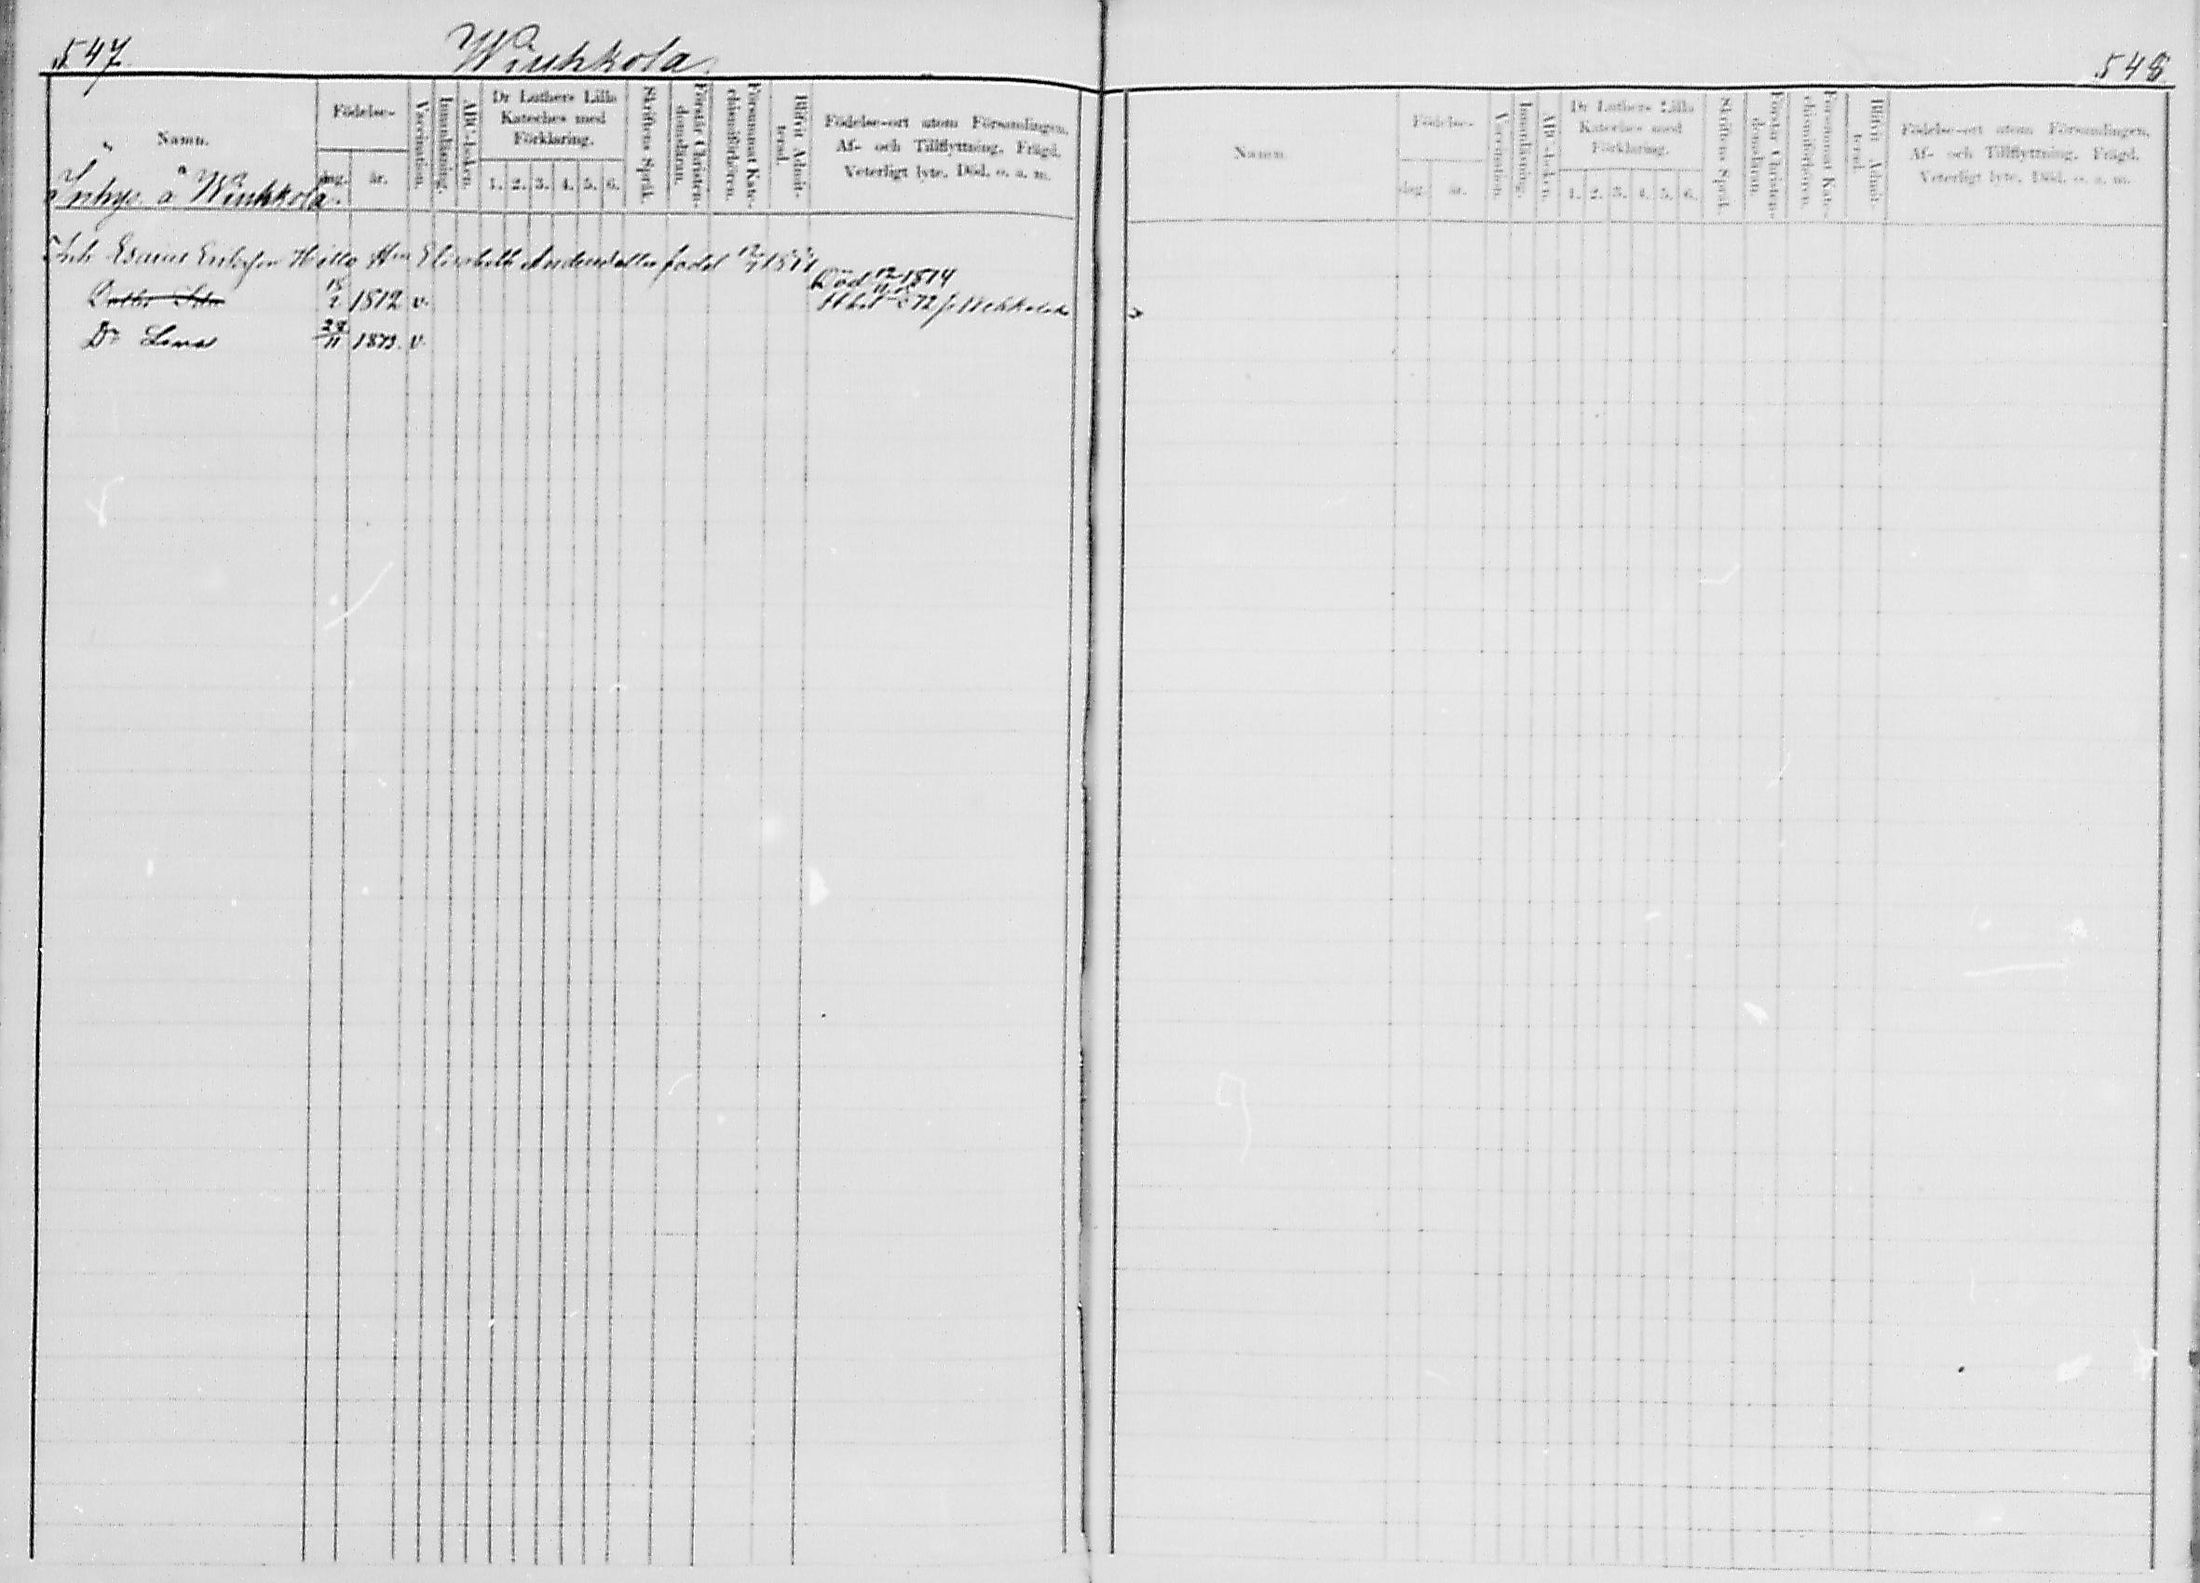 547.
Wiukkola.
548
Namn.
Födelse-
dag.
år.
Vaccination.
Innanläsning.
ABC-boken.
Dr Luthers Lilla
Kateches med
Förklaring.
1. 2. 3. 4. 5. 6.
Skriftens Språk.
Förstår Christen-
domsläran.
Försummat Kate-
chismiförhören.
Blifvit Admit-
terad.
Födelse-ort utom Församlingen.
Af- och Tillflyttning. Frägd.
Veterligt lyte. Död. o. s. m.
Inhys. å Wiukkola.
Elisabeth
Död 12 1814
18/2 1812 v.
Do Lena
28/11 1843. v.
Namn.
Födelse-
dag.
år.
Vaccination.
Innanläsning.
ABC-boken.
Dr Luthers Lilla
Kateches med
Förklaring.
1. 2. 3. 4. 5. 6.
Skriftens Språk.
Förstår Christen-
domsläran.
Försummat Kate-
chismiförhören.
Blifvit Admit-
terad.
Födelse-ort utom Församlingen.
Af- och Tillflyttning. Frägd.
Veterligt lyte. Död. o. s. m.